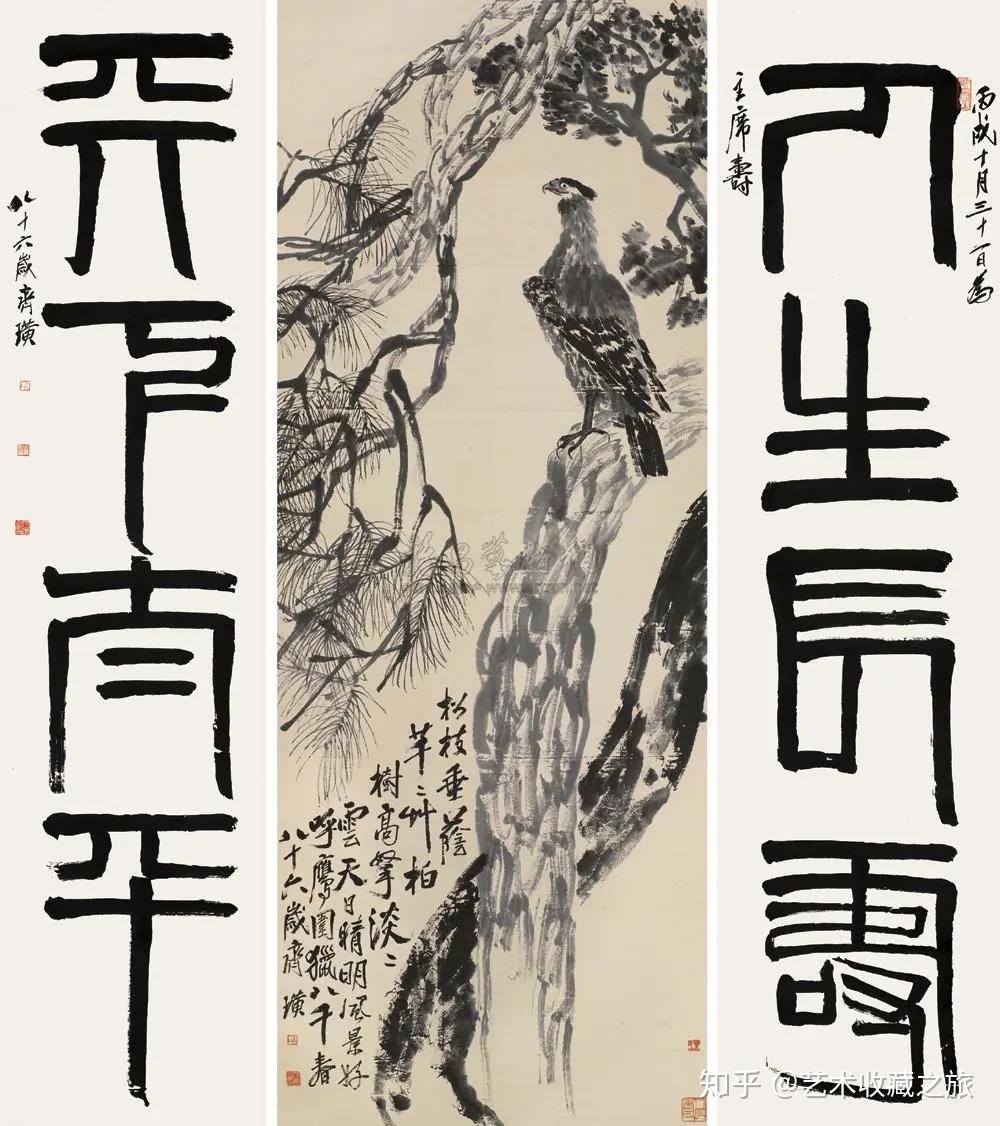 丙戌十月三十一日為
人生長壽
主席壽
松枝垂蔭
芊〻艸柏
樹高擎淡〻
雲天日晴明風景好
呼鷹圍獵八千春
八十六歲齊璜
天下太平
八十六歲齊璜
知乎 @艺术收藏之旅